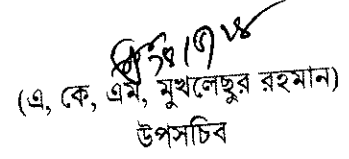 (এ, কে, এম, মুখলেছুর রহমান)
উপসচিব